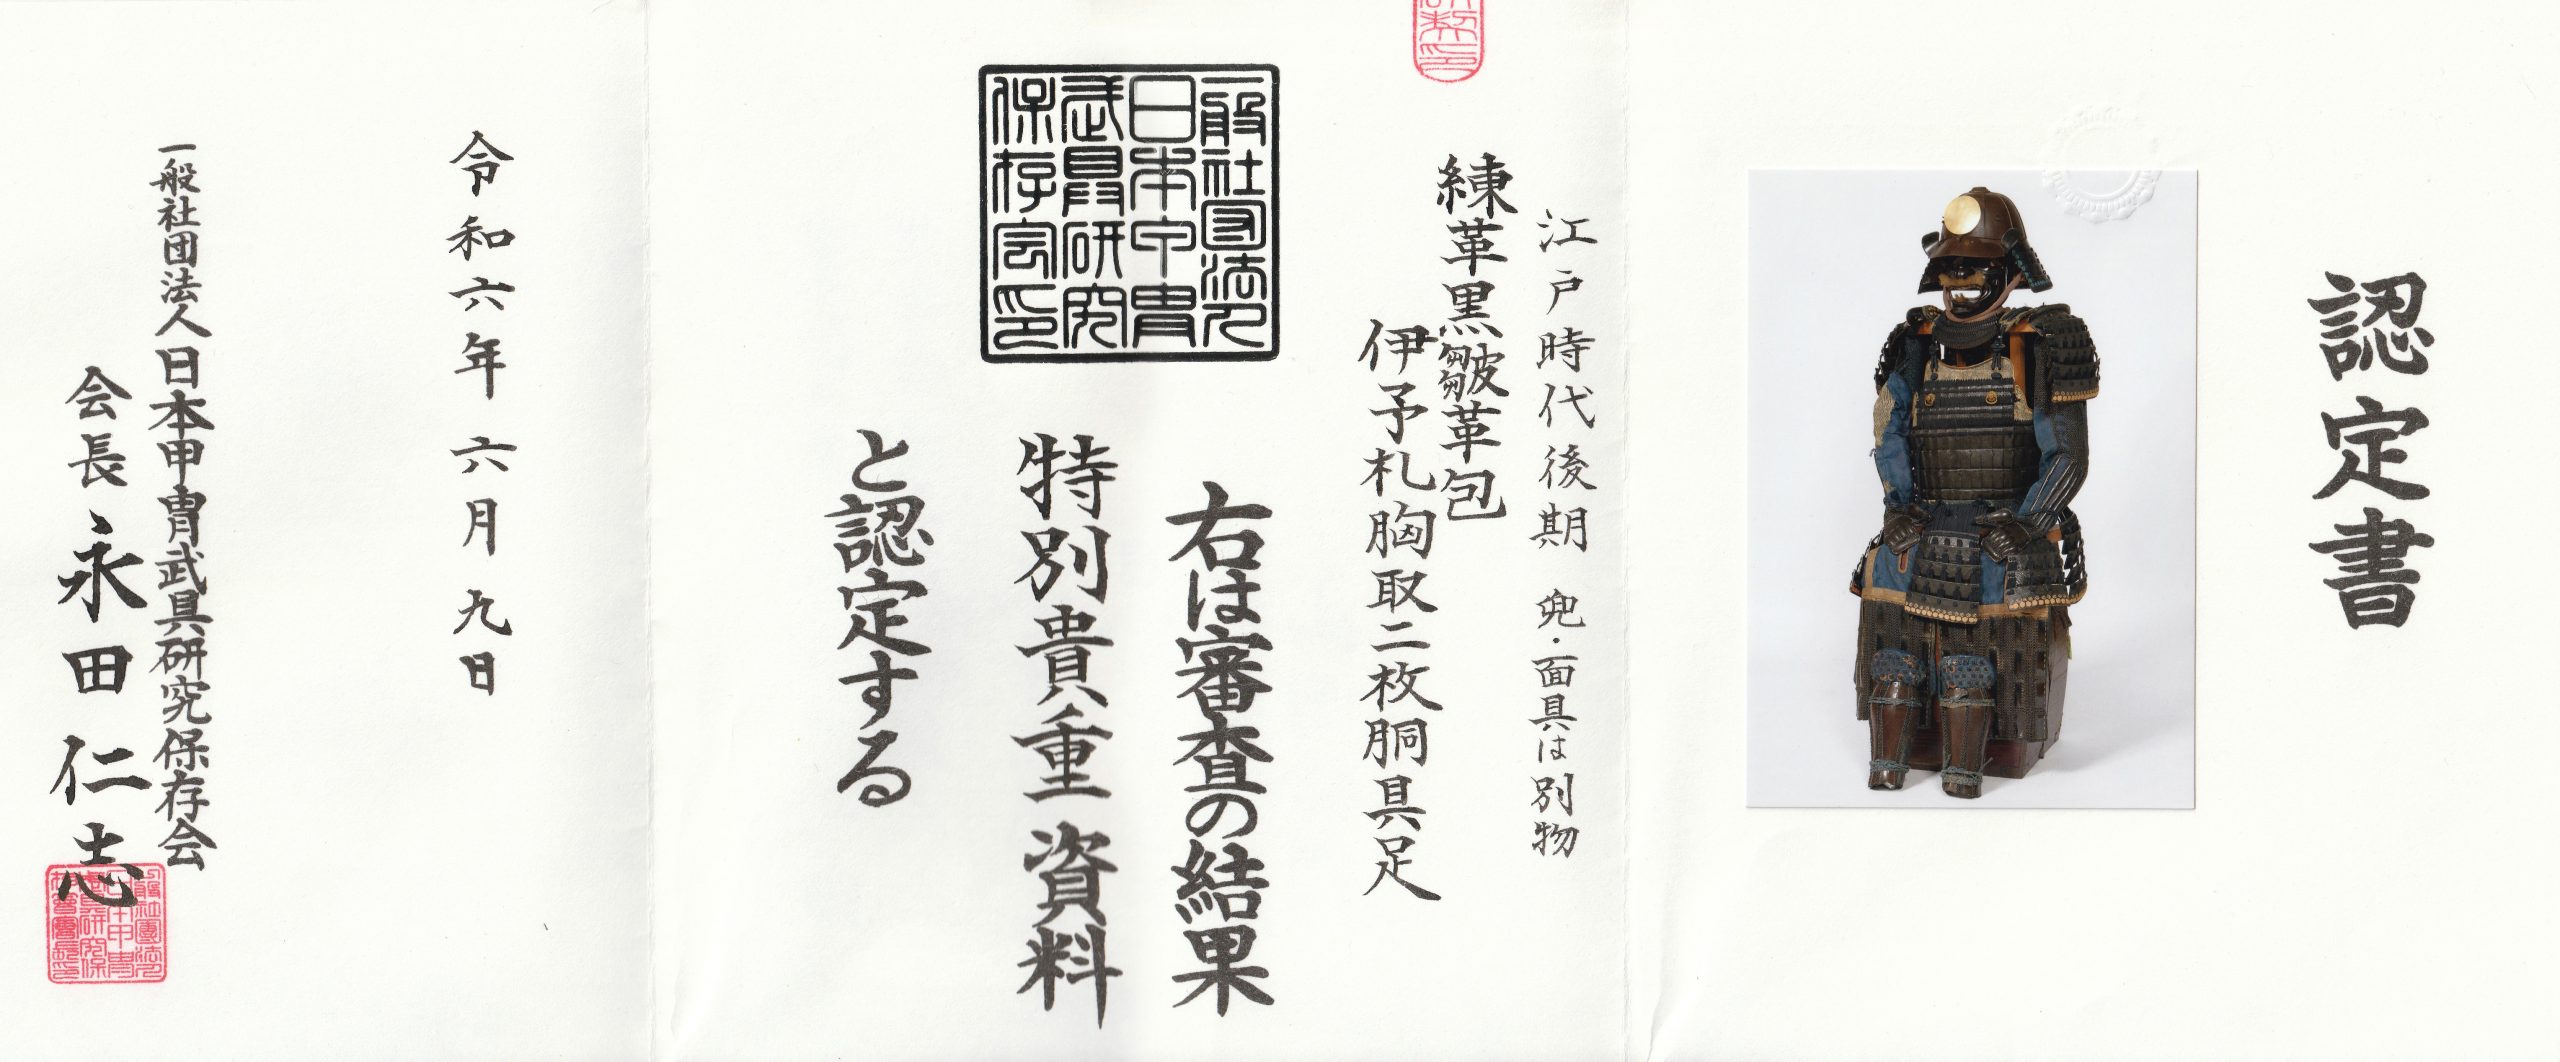 認定書
江戸時代後期 兜・面具は別物
練革黒皺革包
伊予札胸取二枚胴具足
右は審査の結果
特別貴重資料
と認定する
一般社団法人
日本甲冑
武具研究
保存会印
令和六年六月九日
一般社団法人日本甲冑武具研究保存会
会長 永田仁志